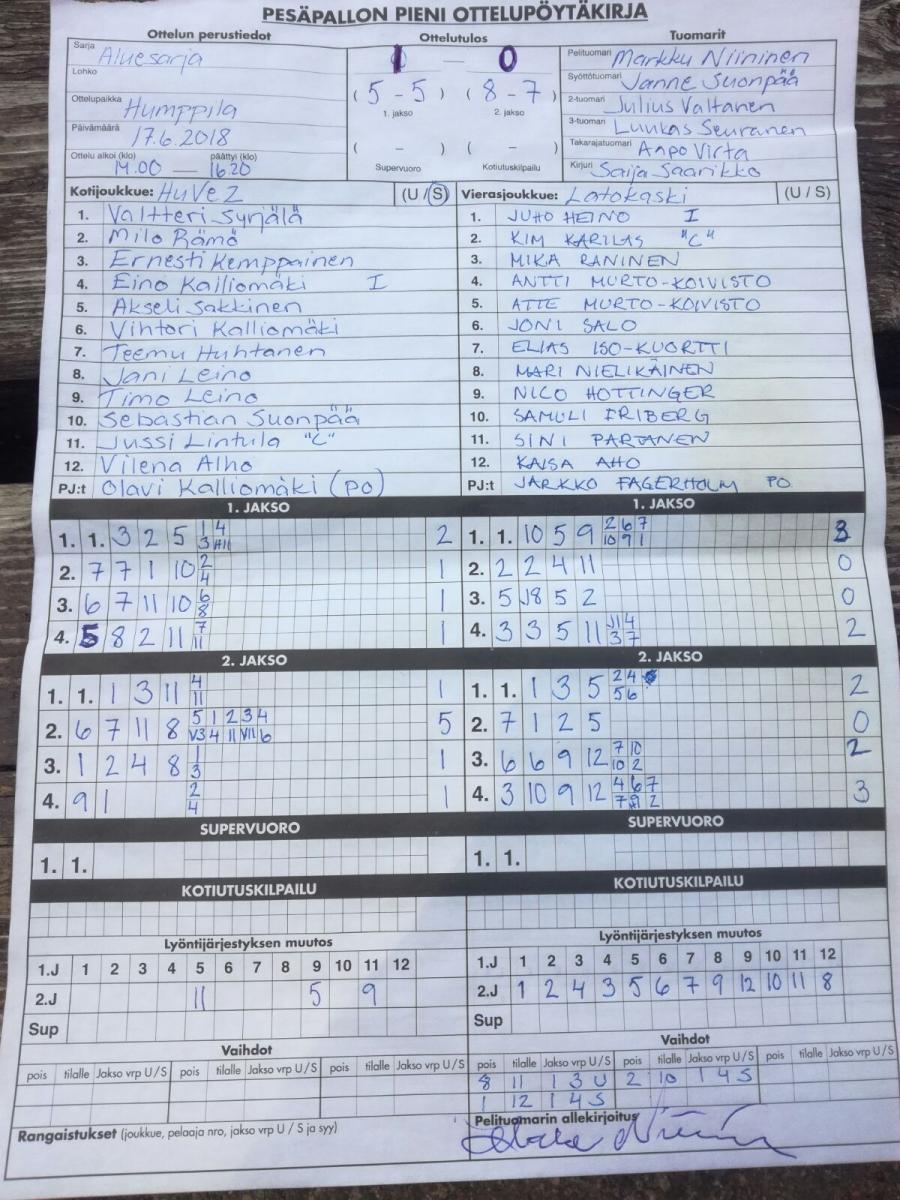 PESÄPALLON PIENI OTTELUPÖYTÄKIRJA
Ottelun perustiedot
Sarja Aluesarja
Lohko
Ottelupaikka Humppila
Päivämäärä 17.6.2018
Ottelu alkoi (klo) päättyi (klo)
14.00 — 16.20
Ottelutulos
1 — 0
( 5 - 5 ) ( 8 - 7 )
1. jakso 2. jakso
( – ) ( – )
Supervuoro Kotiutuskilpailu
Tuomarit
Pelituomari Markku Niininen
Syöttötuomari Janne Suonpää
2-tuomari Julius Valtanen
3-tuomari Luukas Seuranen
Takarajatuomari Aapo Virta
Kirjuri Saija Saarikko
Kotijoukkue: HuVe 2 (U / S)
1. Valtteri Syrjälä
2. Milo Rämö
3. Ernesti Kemppainen
4. Eino Kalliomäki I
5. Akseli Sakkinen
6. Vihtori Kalliomäki
7. Teemu Huhtanen
8. Jani Leino
9. Timo Leino
10. Sebastian Suonpää
11. Jussi Lintula "C"
12. Vilena Alho
PJ:t Olavi Kalliomäki (PO)
Vierasjoukkue: Latokaski (U / S)
1. JUHO HEINO I
2. KIM KARILAS "C"
3. MIKA RANINEN
4. ANTTI MURTO-KOIVISTO
5. ATTE MURTO-KOIVISTO
6. JONI SALO
7. ELIAS ISO-KUORTTI
8. MARI NIELIKÄINEN
9. NICO HOTTINGER
10. SAMULI FRIBERG
11. SINI PARTANEN
12. KAISA AHO
PJ:t JARKKO FAGERHOLM PO
1. JAKSO
1. 1. 3 2 5 1 4 2
3
2. 7 7 1 10 2 1
4
3. 6 7 11 10 6 1
8
4. 5 8 2 11 7 1
11
2. JAKSO
1. 1. 1 3 11 4 1
11
2. 6 7 11 8 5 1 2 3 4 5
V3 4 11 VII 6
3. 1 2 4 8 1 1
3
4. 9 1 2 1
4
SUPERVUORO
1. 1.
KOTIUTUSKILPAILU
1. JAKSO
1. 1. 10 5 9 2 6 7 3
10 9 1
2. 2 2 4 11 0
3. 5 J8 5 2 0
4. 3 3 5 11 J1 4 2
3 7
2. JAKSO
1. 1. 1 3 5 2 4 2
5 6
2. 7 1 2 5 0
3. 6 6 9 12 7 10 2
10 2
4. 3 10 9 12 4 6 7 3
7 2
SUPERVUORO
1. 1.
KOTIUTUSKILPAILU
Lyöntijärjestyksen muutos
1.J 1 2 3 4 5 6 7 8 9 10 11 12
2.J 11 5 9
Sup
Vaihdot
pois tilalle Jakso vrp U / S pois tilalle Jakso vrp U / S pois tilalle Jakso vrp U / S
Rangaistukset (joukkue, pelaaja nro, jakso vrp U / S ja syy)
Lyöntijärjestyksen muutos
1.J 1 2 3 4 5 6 7 8 9 10 11 12
2.J 1 2 4 3 5 6 7 9 12 10 11 8
Sup
Vaihdot
pois tilalle Jakso vrp U / S pois tilalle Jakso vrp U / S pois tilalle Jakso vrp U / S
8 11 1 3 U 2 10 1 4 S
1 12 1 4 S
Pelituomarin allekirjoitus